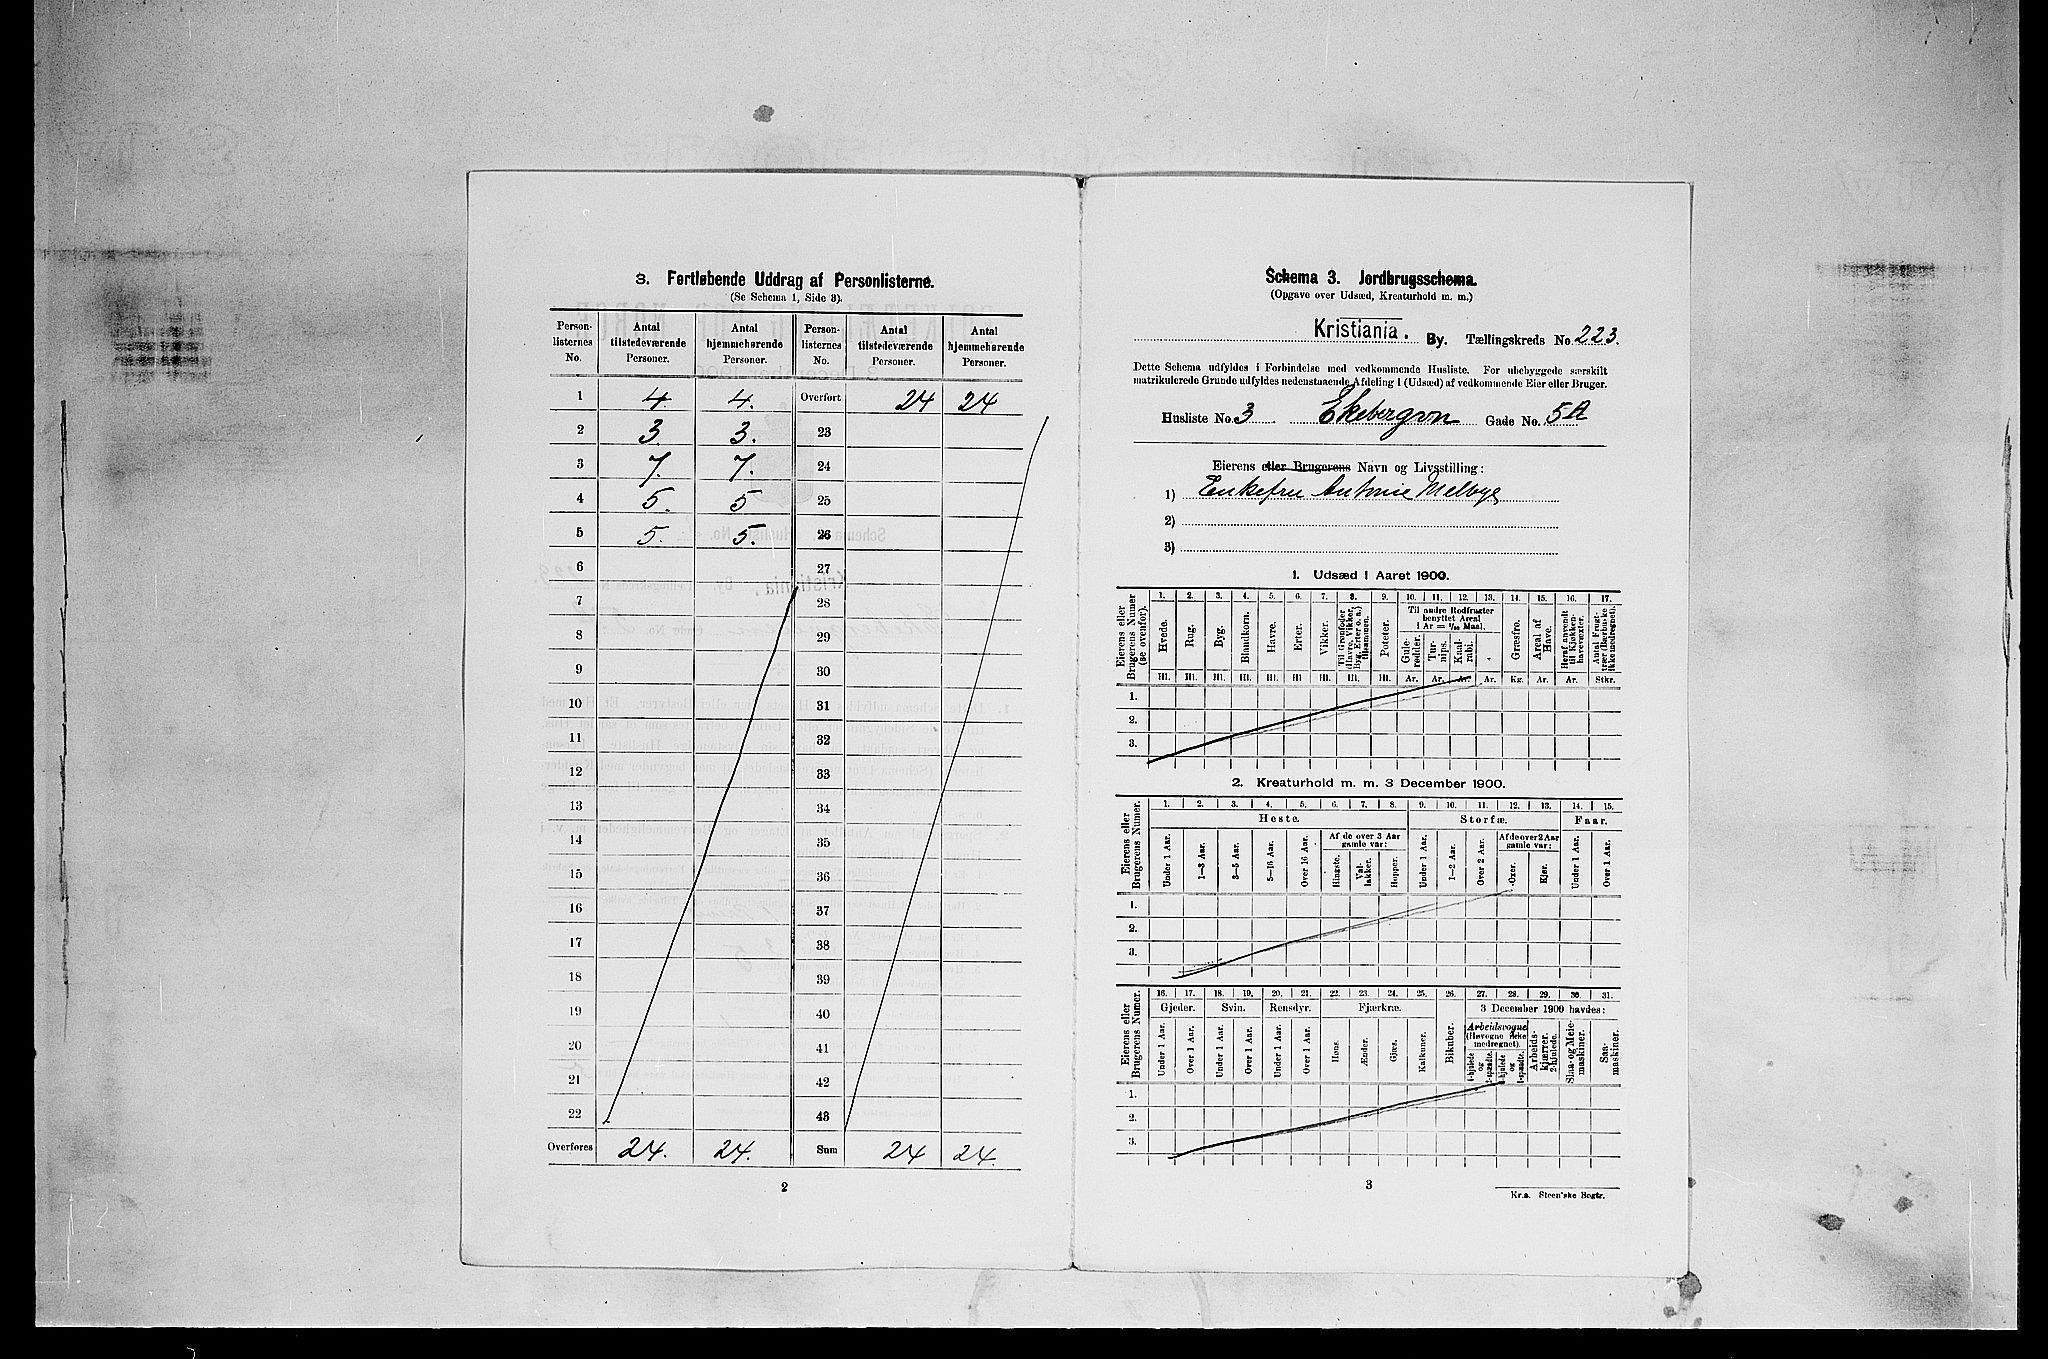 3. Fortløbende Uddrag af Personlisterne.
(Se Schema 1, Side 3).
Person-listernes No. Antal tilstedeværende Personer. Antal hjemmehørende Personer. Person-listernes No. Antal tilstedeværende Personer. Antal hjemmehørende Personer.
1 4. 4. Overført 24 24
2 3. 3. 23
3 7. 7. 24
4 5. 5 25
5 5. 5. 26
6 27
7 28
8 29
9 30
10 31
11 32
12 33
13 34
14 35
15 36
16 37
17 38
18 39
19 40
20 41
21 42
22 43
Overføres 24. 24. Sum 24 24.
2
Schema 3. Jordbrugsschema.
(Opgave over Udsæd, Kreaturhold m. m.)
Kristiania. By. Tællingskreds No. 223.
Dette Schema udfyldes i Forbindelse med vedkommende Husliste. For ubebyggede særskilt
matrikulerede Grunde udfyldes nedenstaaende Afdeling 1 (Udsæd) af vedkommende Eier eller Bruger.
Husliste No. 3 Ekebergvn Gade No. 5A
Eierens eller Brugerens Navn og Livsstilling:
1) Enkefru Antonie Melbye
2)
3)
1. Udsæd i Aaret 1900.
Eierens eller Brugerens Numer (se ovenfor).
1. 2. 3. 4. 5. 6. 7. 8. 9. 10. 11. 12. 13. 14. 15. 16. 17.
Til andre Rodfrugter benyttet Areal 1 Ar = 1/10 Maal.
Hvede. Rug. Byg. Blandkorn. Havre. Erter. Vikker. Til Grønfoder (Havre, Vikker, Byg, Erter o. a.) tilsammen. Poteter. Gulerødder. Turnips. Kaalrabi. Græsfrø. Areal af Have. Heraf anvendt til Kjøkkenhavevæxter. Antal Frugttrær (Bærbuske ikke medregnet).
Hl. Hl. Hl. Hl. Hl. Hl. Hl. Hl. Hl. Ar. Ar. Ar. Ar. Kg. Ar. Ar. Stkr.
1.
2.
3.
2. Kreaturhold m. m. 3 December 1900.
Eierens eller Brugerens Numer.
1. 2. 3. 4. 5. 6. 7. 8. 9. 10. 11. 12. 13. 14. 15.
Heste. Storfæ. Faar.
Af de over 3 Aar gamle var: Af de over 2 Aar gamle var:
Under 1 Aar. 1—3 Aar. 3—5 Aar. 5—16 Aar. Over 16 Aar. Hingste. Vallakker. Hopper. Under 1 Aar. 1—2 Aar. Over 2 Aar. Oxer. Kjør. Under 1 Aar. Over 1 Aar.
1.
2.
3.
Eierens eller Brugerens Numer.
16. 17. 18. 19. 20. 21. 22. 23. 24. 25. 26. 27. 28. 29. 30. 31.
Gjeder. Svin. Rensdyr. Fjærkræ. 3 December 1900 havdes:
Arbeidsvogne (Høvogne ikke medregnet).
Under 1 Aar. Over 1 Aar. Under 1 Aar. Over 1 Aar. Under 1 Aar. Over 1 Aar. Høns. Ænder. Gjæs. Kalkuner. Bikuber. 4-hjulede og 2-spændte. 4-hjulede og 1-spændte. Arbeidskjærrer, 2-hjulede. Slaa- og Meiemaskiner. Saamaskiner.
1.
2.
3.
3
Kr.a. Steen'ske Bogtr.